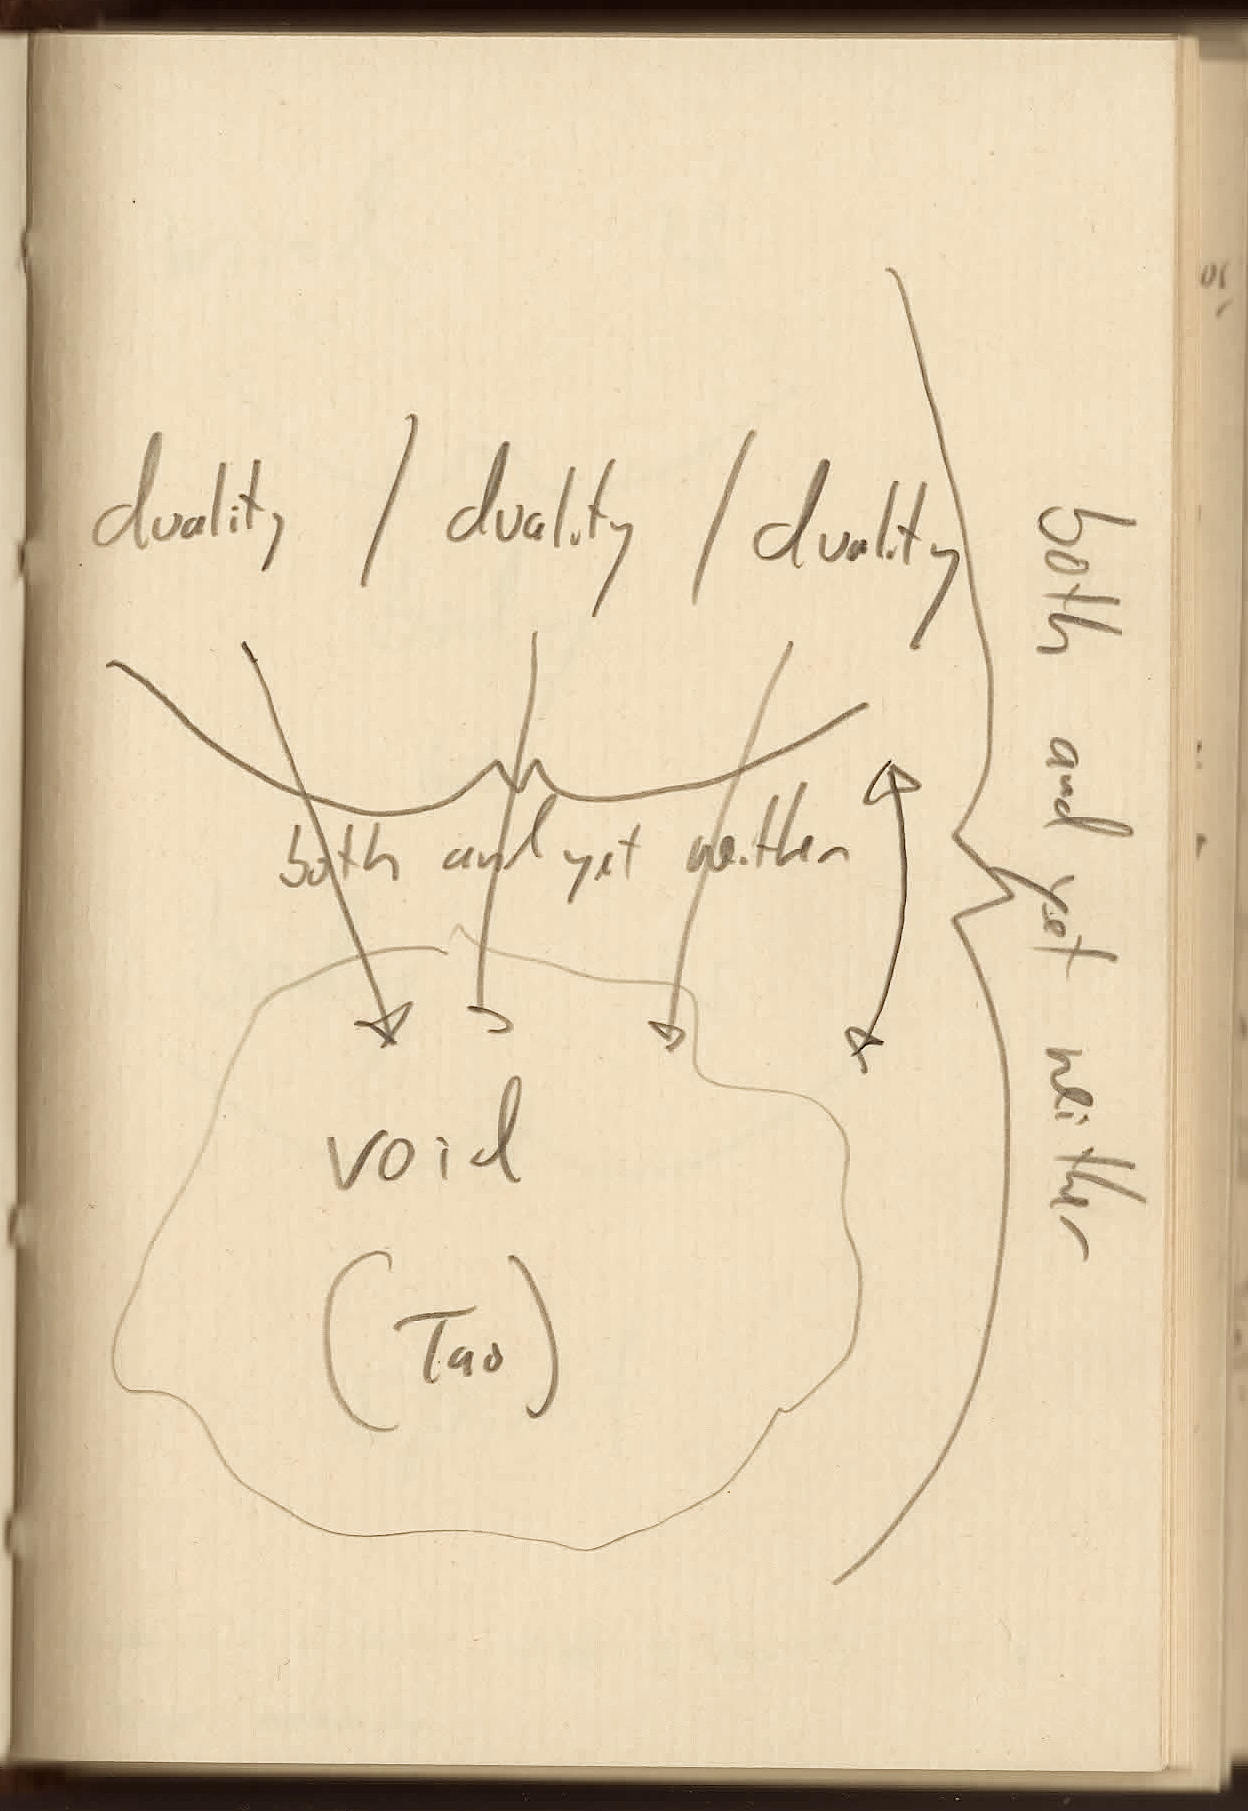 duality / duality / duality
both and yet neither
void
(Tao)
both and yet neither